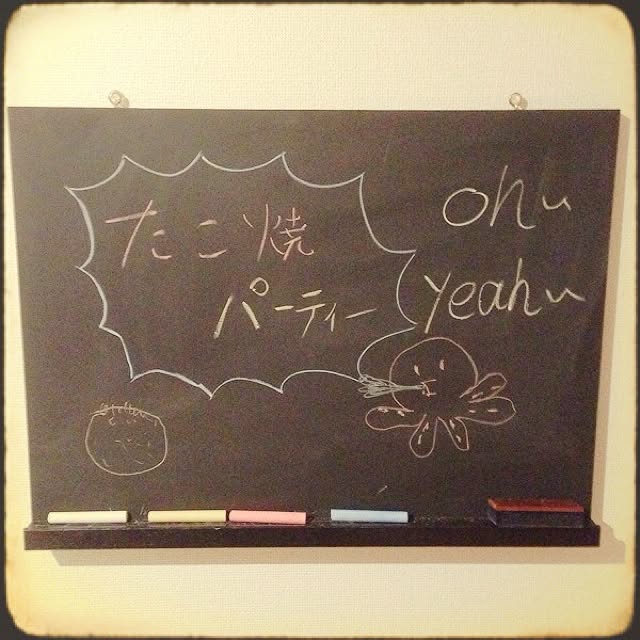 たこ焼
パーティー
oh~
yeah~